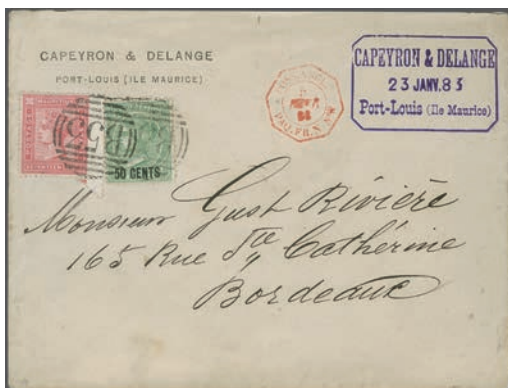 CAPEYRON & DELANGE
PORT-LOUIS (ILE MAURICE)
CAPEYRON & DELANGE
23 JANV. 83
Port-Louis (Ile Maurice)
B53
50 CENTS
PAQ. FR. N
Monsieur Gust Rivière
165 Rue Ste Cathérine
Bordeaux